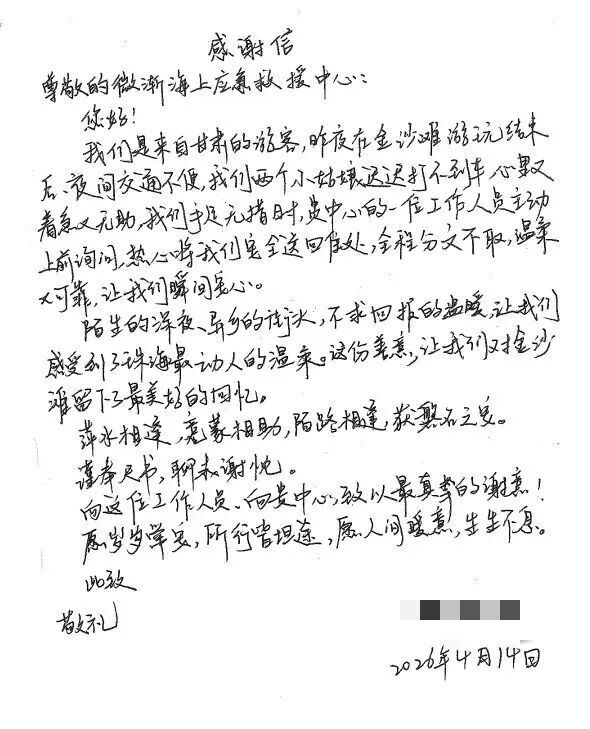 感谢信
尊敬的微渐海上应急救援中心：
您好！
我们是来自甘肃的游客，昨夜在金沙滩游玩结束
后、夜间交通不便，我们两个小姑娘迟迟打不到车，心里又
着急又无助，我们手足无措时，贵中心的一位工作人员主动
上前询问，热心将我们安全送回住处，全程分文不取，温柔
又可靠，让我们瞬间安心。
陌生的深夜、异乡的街头，不求回报的温暖，让我们
感受到了珠海最动人的温柔。这份善意，让我们对金沙
滩留下了最美好的回忆。
萍水相逢，竟蒙相助，陌路相逢，获磐石之安。
谨奉尺书，聊表谢忱。
向这位工作人员、向贵中心，致以最真挚的谢意！
愿岁岁常安，所行皆坦途，愿人间暖意，生生不息。
此致
敬礼
2026年4月14日